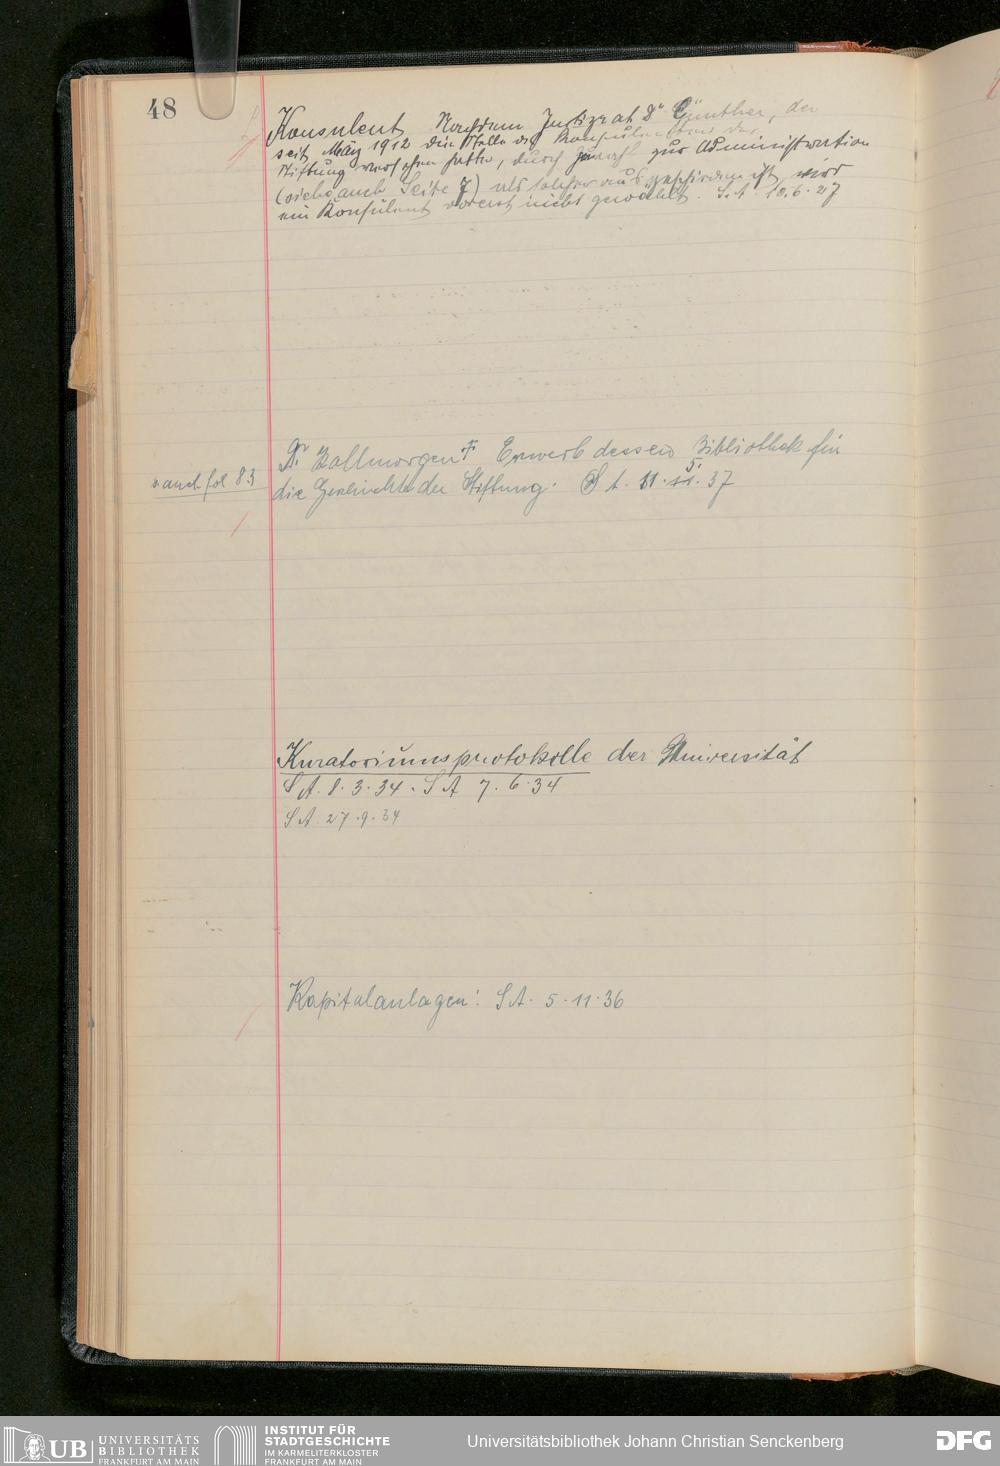 48
Konsulent Nachdem Justizrat Dr Günther, der
seit März 1912 die Stelle des Konsulenten der
Stiftung versehen hatte, durch Zuwahl zur Administration
(siehe auch Seite 7) als solcher ausgeschieden ist, wird
ein Konsulent vorerst nicht gewählt. S.A. 10.6.27
s. auch fol 83
Dr. Kallmorgen †. Erwerb dessen Bibliothek für
die Geschichte der Stiftung. S A. 11.5.37
Kuratoriumsprotokolle der Universität
S A. 8.3.34. S A 7.6.34
S A. 27.9.34
Kapitalanlagen: S A. 5.11.36
UB UNIVERSITÄTS
BIBLIOTHEK
FRANKFURT AM MAIN
INSTITUT FÜR
STADTGESCHICHTE
IM KARMELITERKLOSTER
FRANKFURT AM MAIN
Universitätsbibliothek Johann Christian Senckenberg
DFG